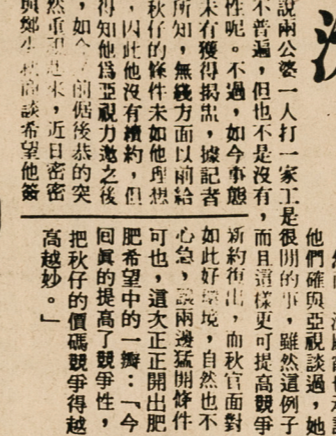 他們確與亞視談過，她
說兩公婆一人打一家工是很開的事，雖然這例子
不普遍，但也不是沒有，而且這樣更可提高競爭
性呢。不過，如今事態
未有獲得揭盅，據記者
所知，無綫方面以前給
秋仔的條件未如他理想
，因此他沒有續約，但
得知他爲亞視力邀之後
，如今前倨後恭的突
然重視起來，近日密密
與鄭少秋商談希望他簽
新約復出，而秋官面對
如此好環境，自然也不
心急，讓兩邊猛開條件
可也，這次正正開出肥
肥希望中的一瓣：「今
回眞的提高了競爭性，
把秋仔的價碼競爭得越
高越妙。」